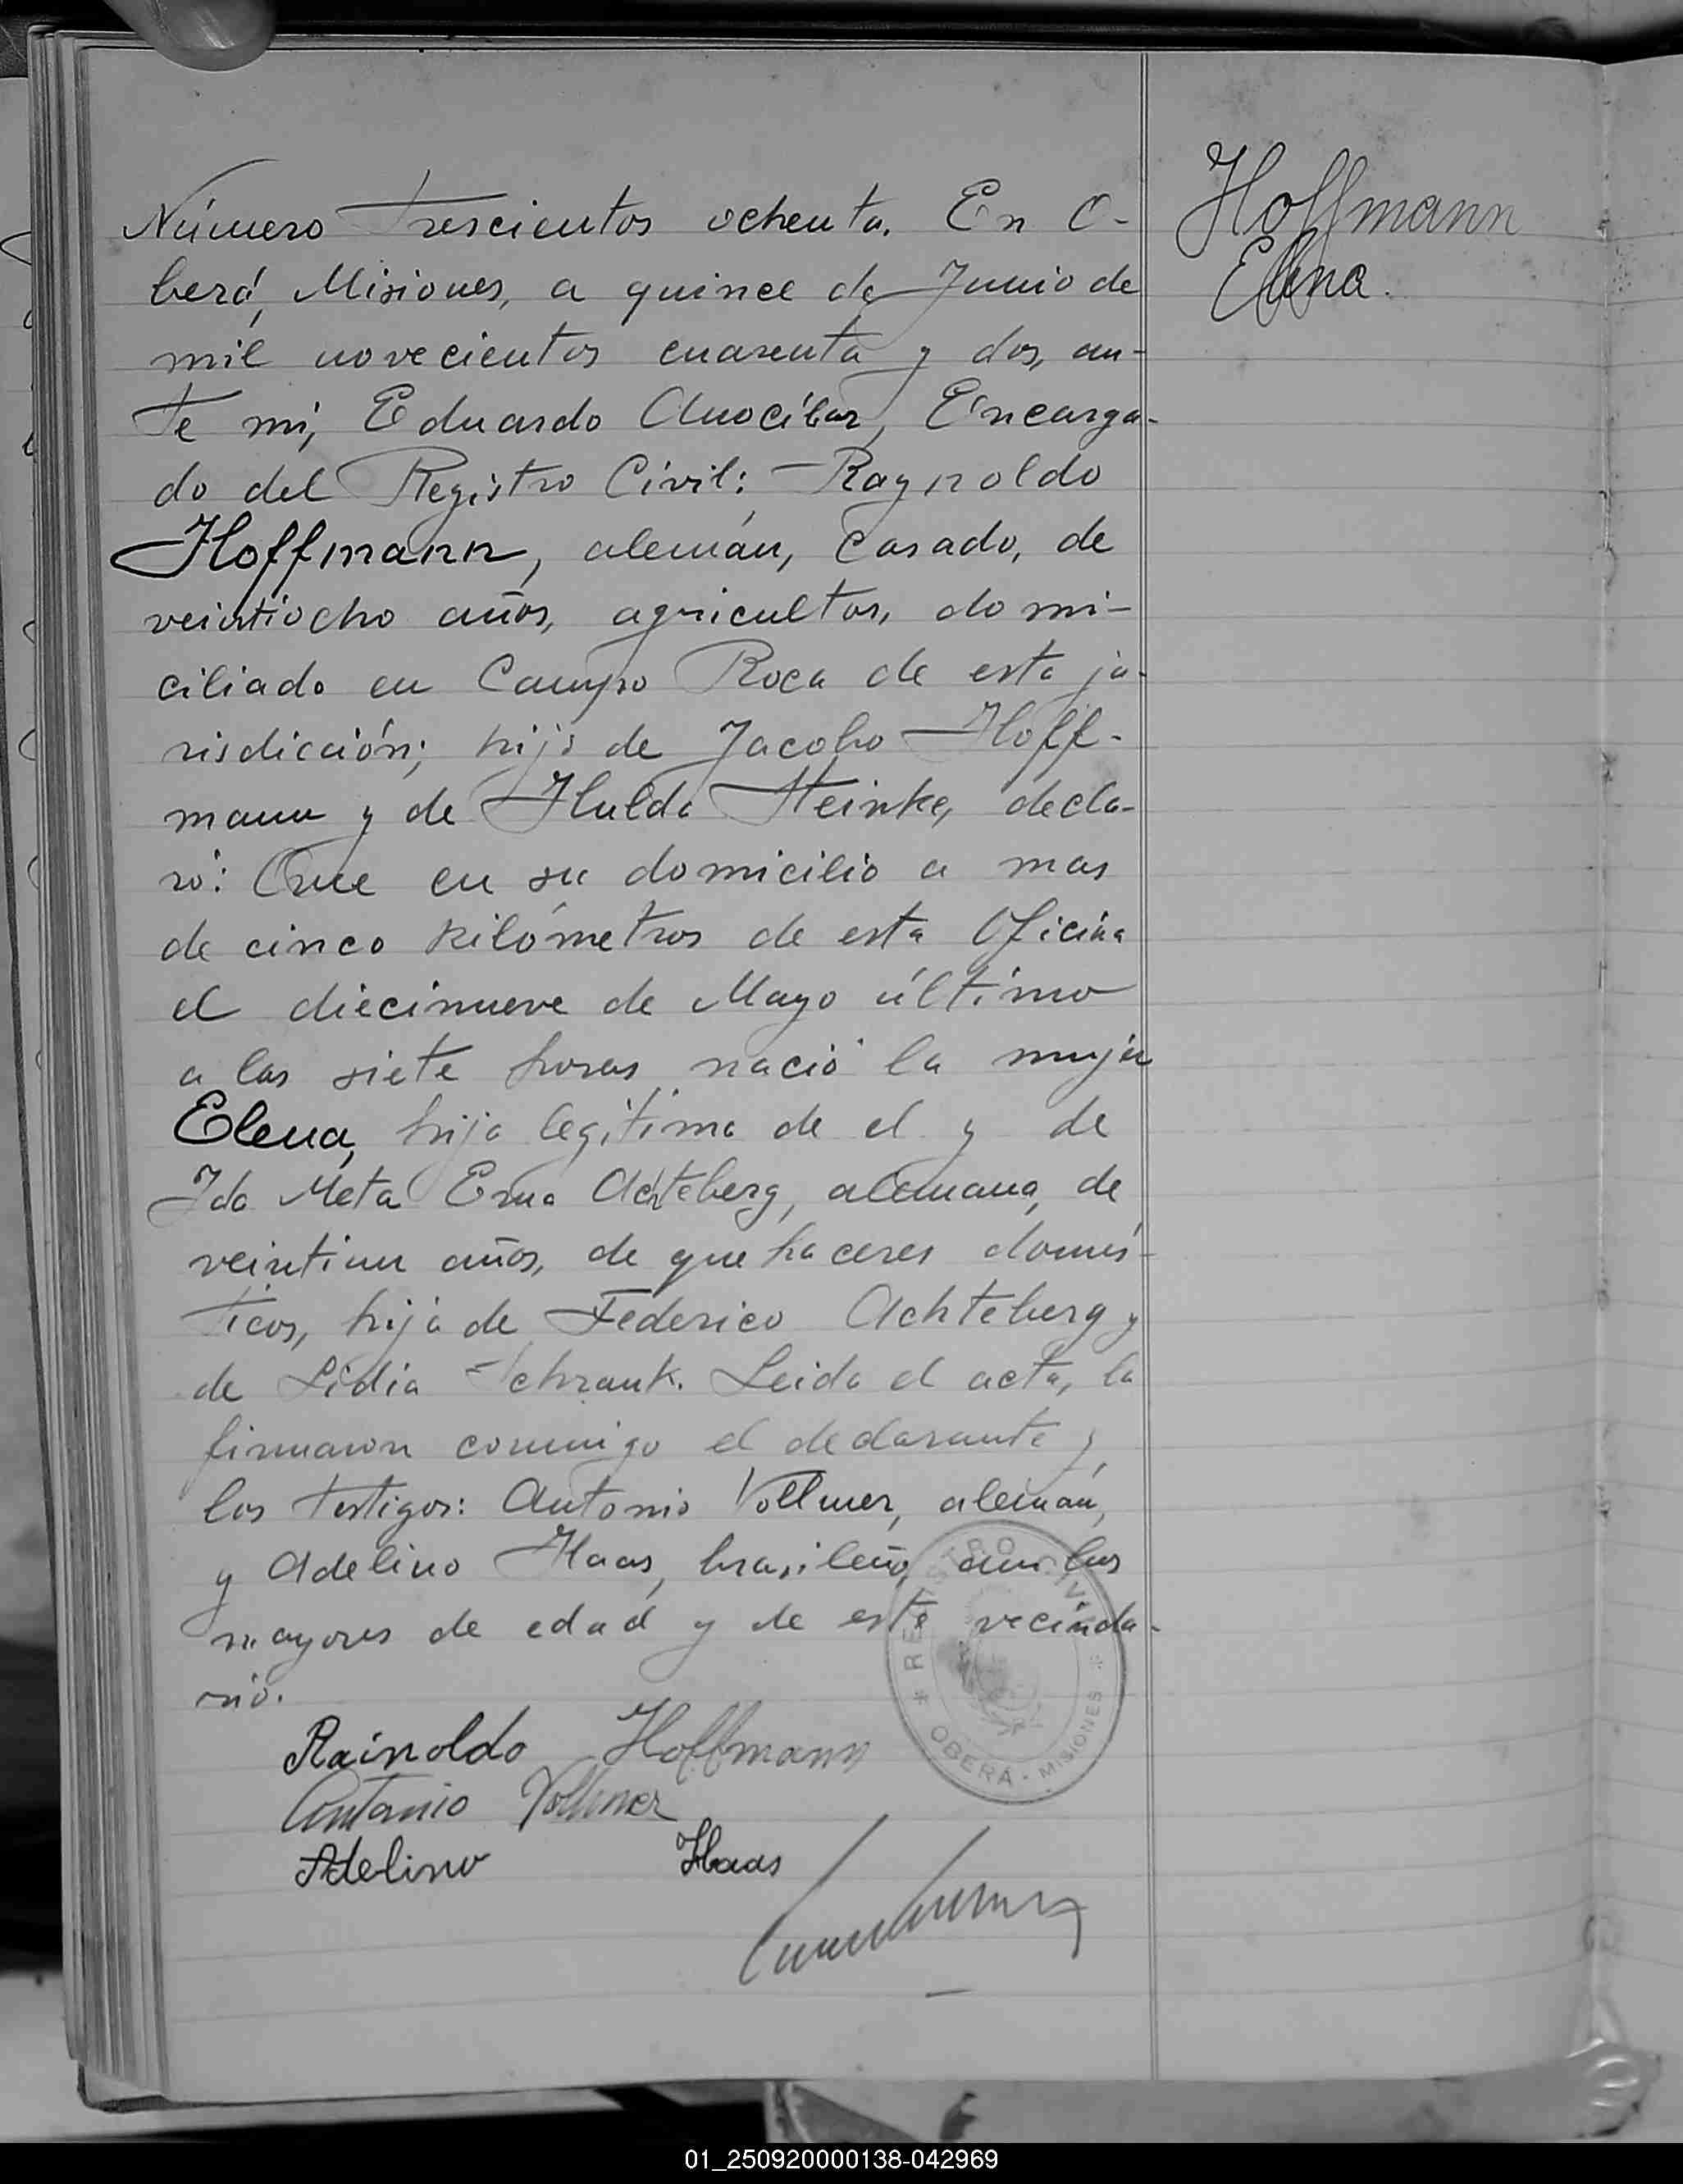 Número trescientos ochenta. En O-
berá, Misiones, a quince de Junio de
mil novecientos cuarenta y dos, an-
te mi, Eduardo Anocíbar, Encarga-
do del Registro Civil: Raynoldo
Hoffmann, alemán, casado, de
veintiocho años, agricultor, domi-
ciliado en Campo Roca de esta ju-
risdicción; hijo de Jacobo Hoff-
mann y de Hulda Heinke, decla-
ró: Que en su domicilio a mas
de cinco kilómetros de esta Oficina
el diecinueve de Mayo último
a las siete horas nació la mujer
Elena, hija legítima de el y de
Ida Meta Erna Achteberg, alemana, de
veintiun años, de que haceres domés-
ticos, hija de Federico Achteberg y
de Lidia Schrank. Leida el acta, la
firmaron conmigo el declarante y
los testigos: Antonio Vollmer, alemán,
y Adelino Haas, brasileño, ambos
mayores de edad y de este vecinda-
rio.
Rainoldo Hoffmann
Antonio Vollmer
Adelino Haas
Hoffmann
Elena.
* REGISTRO CIVIL *
OBERÁ - MISIONES
01_250920000138-042969